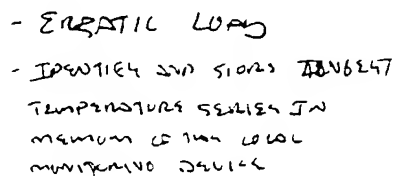 - ERRATIC LOAD
- IDENTIFY AND STORE
TEMPERATURE SERIES IN
MEMORY OF THE LOCAL
MONITORING DEVICE